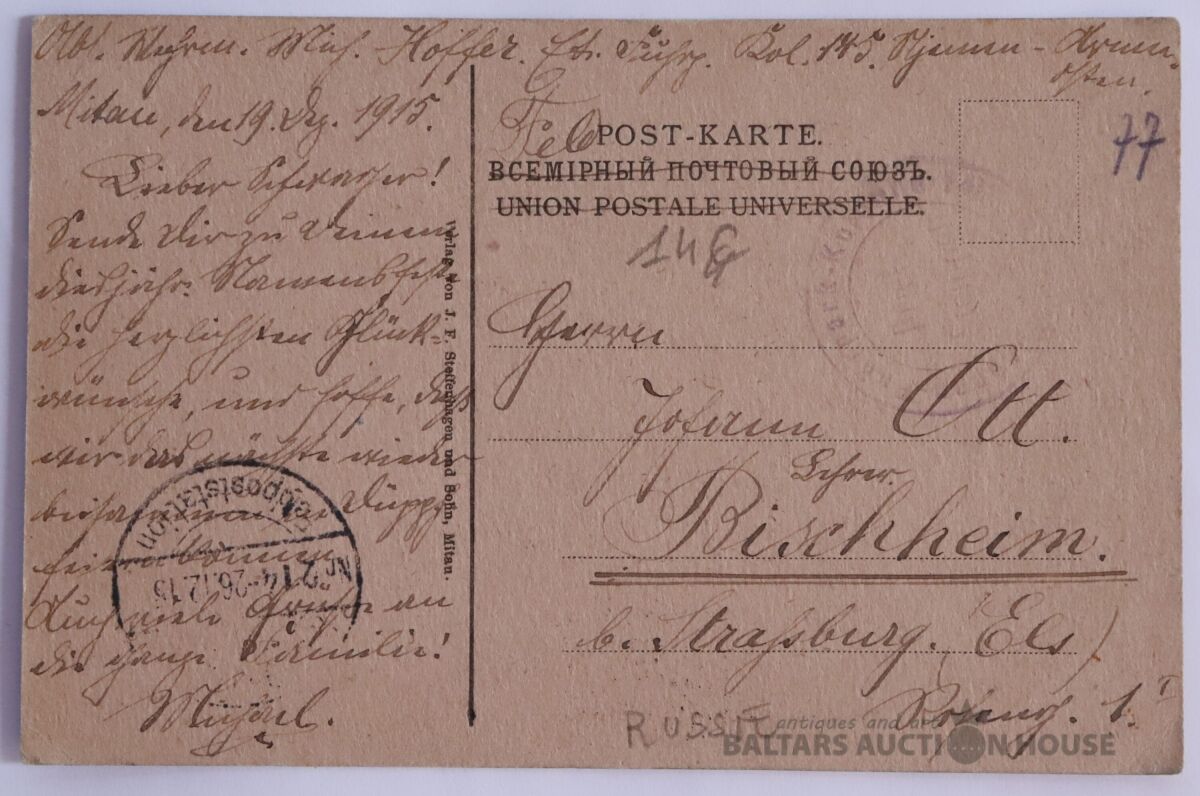 Abs. Wehrm. Mich. Hoffer. Et. Fuhrp. Kol. 145. Njemen-Armee.
Osten.
Mitau, den 19. Dez. 1915.
Lieber Schwager!
Sende Dir zu Deinem
diesjähr. Namensfeste
die herzlichsten Glück-
wünsche, und hoffe, daß
wir das nächste wieder
beisammen in Düppg
feiern können.
Auch viele Grüße an
die ganze Familie!
Michael.
Verlag von J. F. Steffenhagen und Sohn, Mitau.
Feldpoststation
Nr. 214
26.12.15
Feld
POST-KARTE.
ВСЕМІРНЫЙ ПОЧТОВЫЙ СОЮЗЪ.
UNION POSTALE UNIVERSELLE.
77
14 €
Herrn
Johann Ott.
Lehrer.
Bischheim.
b. Straßburg. (Els)
1.
RUSSIE
antiques and art
BALTARS AUCTION HOUSE